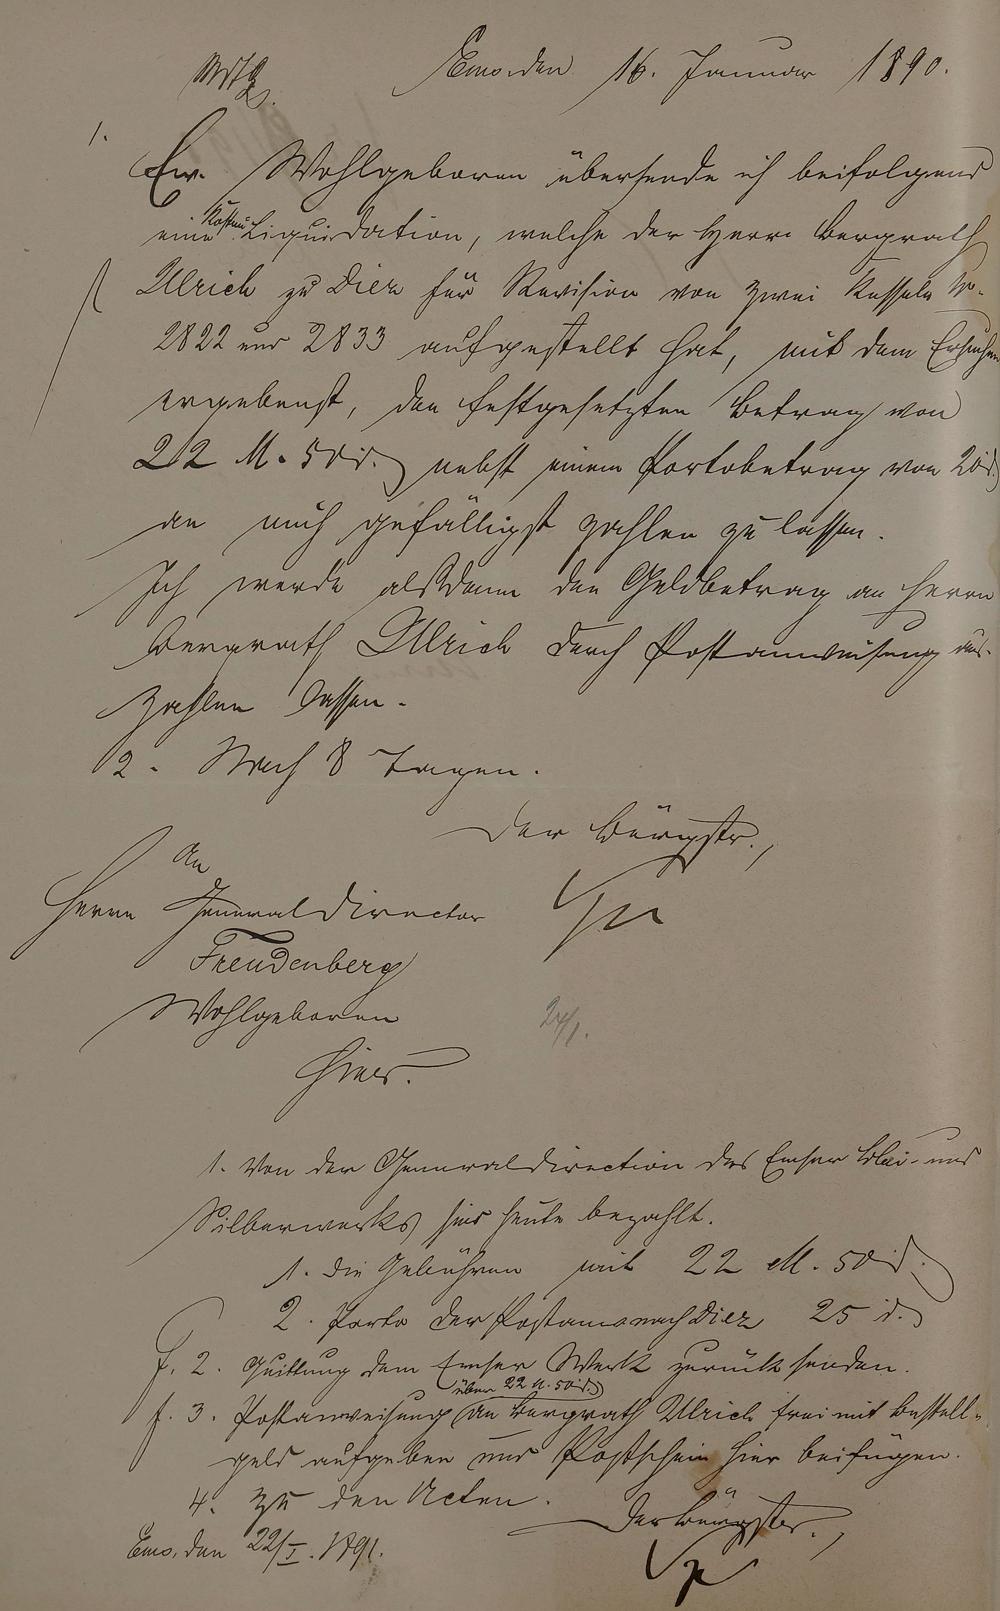 Ems, den 16. Januar 1890.
1.
Ew. Wohlgeboren übersende ich beifolgend
eine Kosten Liquidation, welche der Herr Bergrath
Ulrich zu Diez für Revision von zwei Kesseln No.
2822 und 2833 aufgestellt hat, mit dem Ersuchen
ergebenst, den festgesetzten Betrag von
22 M. 50 d. nebst einem Portobetrag von 20 d.
an mich gefälligst zahlen zu lassen.
Ich werde alsdann den Geldbetrag an Herrn
Bergrath Ulrich durch Postanweisung aus-
zahlen lassen.
2. Nach 8 Tagen.
Der Bürgstr.,
An
Herrn Generaldirector
Freudenberg
Wohlgeboren
hier.
24/1.
1. Von der Generaldirection des Emser Blei- und
Silberwerks sind heute bezahlt.
1. die Gebühren mit 22 M. 50 d.
2. Porto der Postanw nach Diez 25 d.
f. 2. Quittung dem Emser Werk zurücksenden.
über 22 M. 50 d.
f. 3. Postanweisung an Bergrath Ulrich frei mit Bestell-
geld aufgeben und Postschein hier beifügen.
4. Zu den Acten.
Der Bürgstr.,
Ems, den 22/I. 1891.